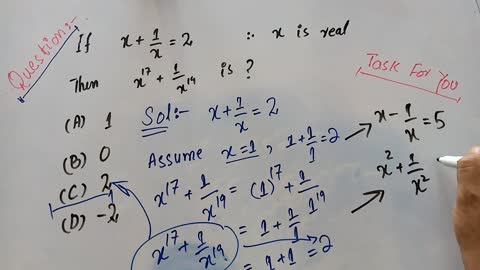 Question:-
If x + 1/x = 2 ∴ x is real
Then x^17 + 1/x^19 is ?
(A) 1
(B) 0
(C) 2
(D) -2
Sol:- x + 1/x = 2
Assume x=1, 1 + 1/1 = 2
x^17 + 1/x^19 = (1)^17 + 1/1^19
= 1 + 1/1
= 1+1 = 2
x^17 + 1/x^19
Task For You
x - 1/x = 5
x^2 + 1/x^2